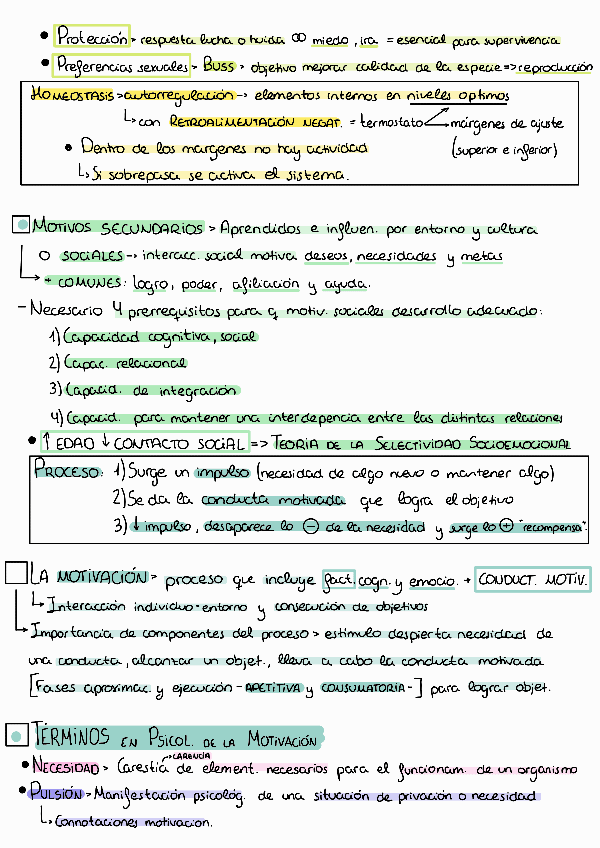 • Protección > respuesta lucha o huida ∞ miedo, ira = esencial para supervivencia
• Preferencias sexuales > BUSS > objetivo mejorar calidad de la especie => reproducción
HOMEOSTASIS > autorregulación -> elementos internos en niveles optimos
↳ con RETROALIMENTACIÓN NEGAT. = termostato márgenes de ajuste
• Dentro de los margenes no hay actividad (superior e inferior)
↳ Si sobrepasa se activa el sistema.
MOTIVOS SECUNDARIOS > Aprendidos e influen. por entorno y cultura
O SOCIALES -> interacc. social motiva deseos, necesidades y metas
+ COMUNES: logro, poder, afiliación y ayuda.
- Necesario 4 prerrequisitos para q motiv. sociales desarrollo adecuado:
1) Capacidad cognitiva, social
2) Capac. relacional
3) Capacid. de integración
4) Capacid. para mantener una interdepencia entre las distintas relaciones
• ↑ EDAD ↓ CONTACTO SOCIAL => TEORIA DE LA SELECTIVIDAD SOCIOEMOCIONAL
PROCESO: 1) Surge un impulso (necesidad de algo nuevo o mantener algo)
2) Se da la conducta motivada que logra el objetivo
3) ↓ impulso, desaparece lo ⊖ de la necesidad y surge lo ⊕ "recompensa".
LA MOTIVACIÓN > proceso que incluye fact. cogn. y emocio. + CONDUCT. MOTIV.
↳ Interacción individuo-entorno y consecución de objetivos
Importancia de componentes del proceso > estimulo despierta necesidad de
una conducta, alcanzar un objet., lleva a cabo la conducta motivada
[Fases aproximac. y ejecución - APETITIVA y CONSUMATORIA -] para lograr objet.
TÉRMINOS EN PSICOL. DE LA MOTIVACIÓN
→ CARENCIA
• NECESIDAD > Carestia de element. necesarios para el funcionam. de un organismo
• PULSIÓN > Manifestación psicológ. de una situación de privación o necesidad
↳ Connotaciones motivacion.